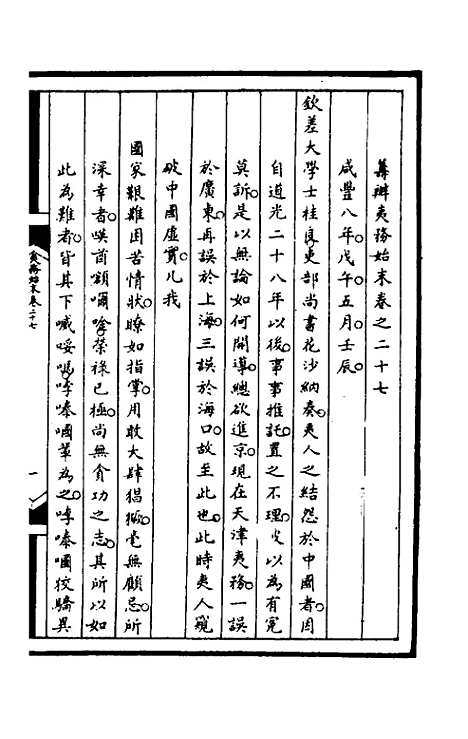 籌辦夷務始末卷之二十七
咸豐八年戊午五月壬辰
欽差大學士桂良吏部尚書花沙納奏夷人之結怨於中國者因
自道光二十八年以後事事推託置之不理伊以為有冤
莫訴是以無論如何開導總欲進京現在天津夷務一誤
於廣東再誤於上海三誤於海口故至此也此時夷人窺
破中國虛實凡我
國家艱難困苦情狀瞭如指掌用敢大肆猖獗毫無顧忌所
深幸者㗎酋額爾唫榮祿已極尚無貪功之志其所以如
此為難者皆其下㖕𠸄嗎㖫嗪嘓輩為之㖫嗪嘓狡驕異
夷務始末卷二十七
一